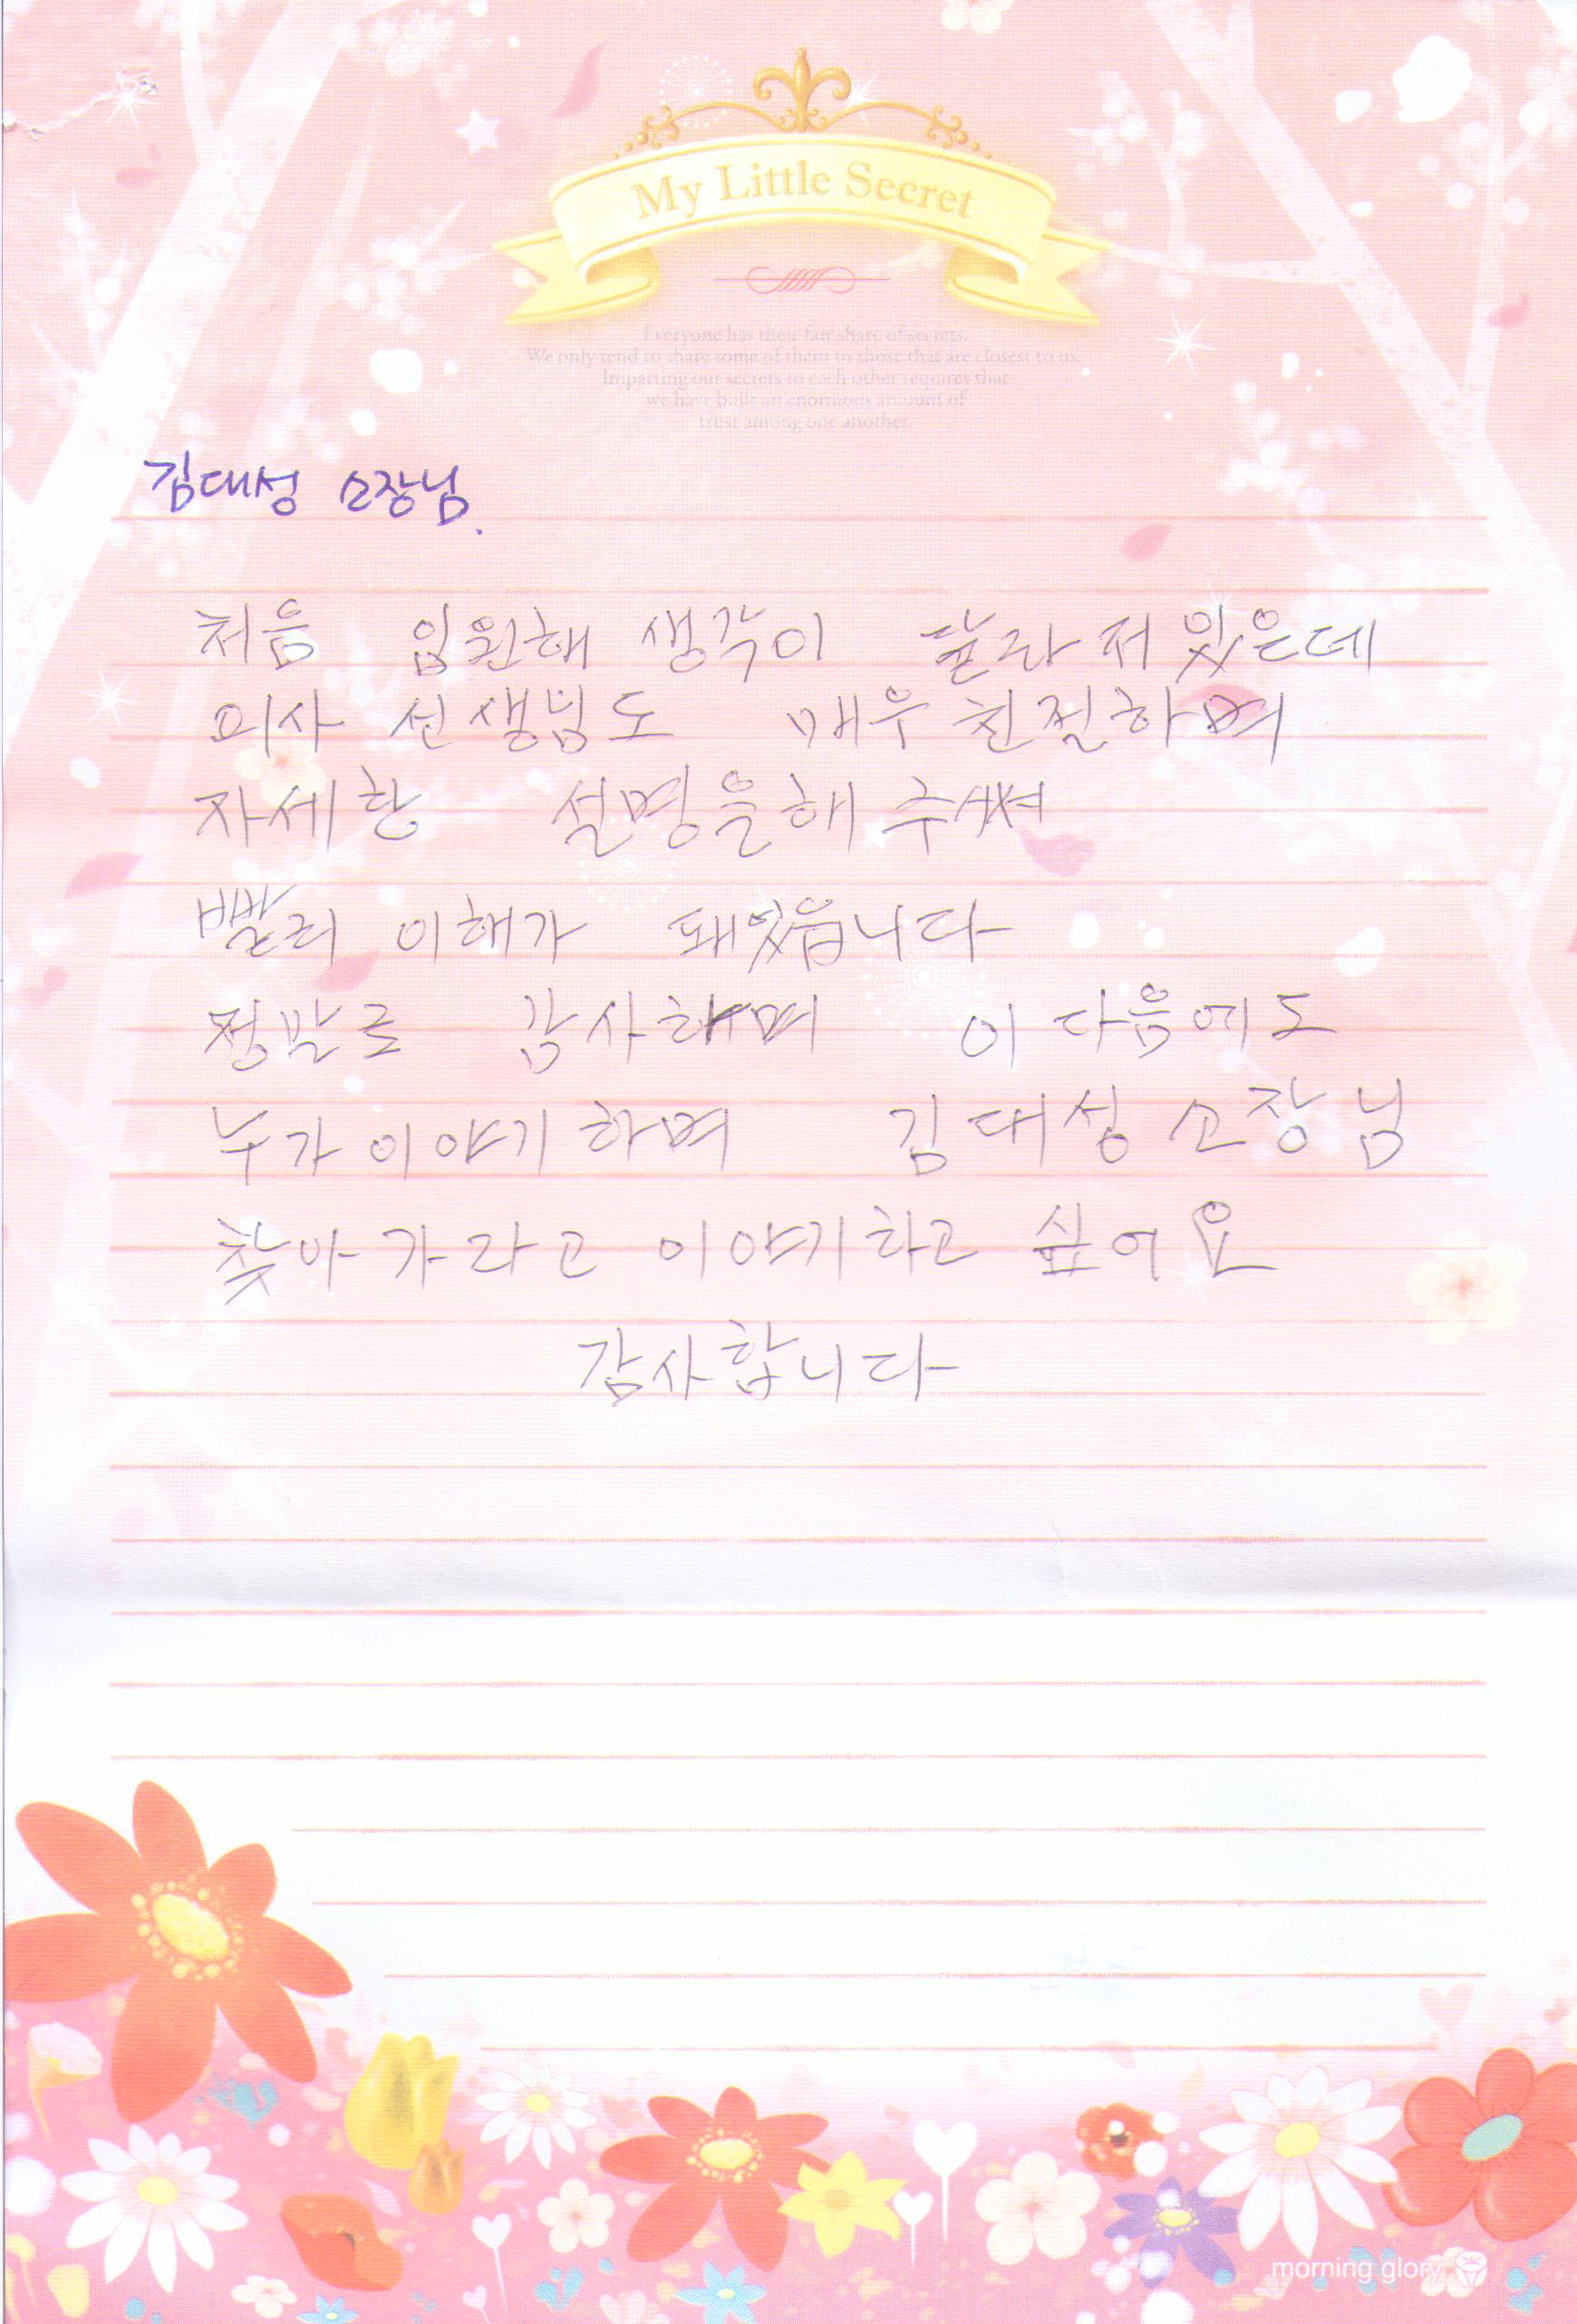 My Little Secret
Everyone has their fair share of secrets.
We only tend to share some of them to those that are closest to us.
Imparting our secrets to each other requires that
we have built an enormous amount of
trust among one another.
김대성 소장님.
처음 입원해 생각이 달라저있은데
의사 선생님도 매우 친절하며
자세한 설명을해 주셔
빨리 이해가 돼있읍니다
정말로 감사하며 이 다음에도
누가이야기하며 김대성소장님
찾아가라고 이야기하고 싶어요
감사합니다
morning glory